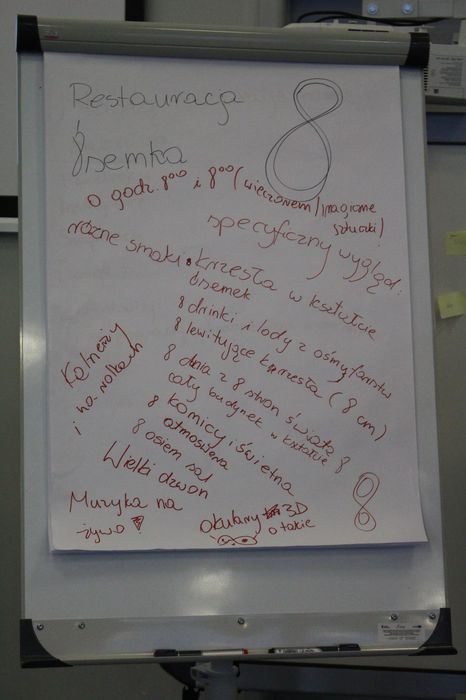 Restauracja
8semka
8
o godz. 8⁰⁰ i 8⁰⁰ (wieczorem/magiczne
sztuczki)
specyficzny wygląd:
różne smaki. krzesła w kształcie
8semek
8 drinki i lody z ośmy warstw
8 lewitujące krzesła (8 cm)
8 dnia z 8 stron świata
cały budynek w kształcie 8
8 komicy i świetna
atmosfera
8 osiem sal
Kelnerzy
na rolkach
i
Wielki dzwon
Muzyka na
żywo
okulary 3D
o takie
8